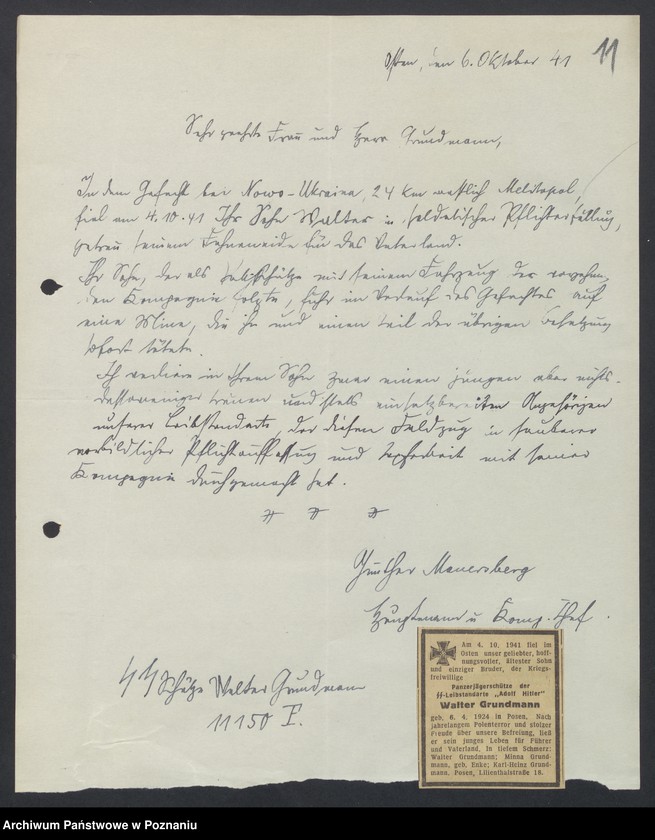 Osten, den 6. Oktober 41
11
Sehr geehrte Frau und Herr Grundmann,
In dem Gefecht bei Nowo-Ukraina, 24 km westlich Melitopol,
fiel am 4.10.41 Ihr Sohn Walter in soldatischer Pflichterfüllung,
getreu seinem Fahneneide für das Vaterland.
Ihr Sohn, der als mit seinem Fahrzeug der vorgehen-
den Kompagnie folgte, fuhr im Verlauf des Gefechtes auf
eine Mine, die ihn und einen Teil der übrigen Besatzung
sofort tötete.
Ich verliere in Ihrem Sohn zwar einen jungen aber nichts-
destoweniger treuen und stets einsatzbereiten Angehörigen
unserer Leibstandarte, der diesen Feldzug in sauberer
vorbildlicher Pflichtauffassung und Tapferkeit mit seiner
Kompagnie durchgemacht hat.
Günther Mauersberg
Hauptmann u. Komp. Chef.
SS Schütze Walter Grundmann
11150 F.
Am 4. 10. 1941 fiel im
Osten unser geliebter, hoff-
nungsvoller, ältester Sohn
und einziger Bruder, der Kriegs-
freiwillige
Panzerjägerschütze der
SS-Leibstandarte „Adolf Hitler"
Walter Grundmann
geb. 8. 4. 1924 in Posen. Nach
jahrelangem Polenterror und stolzer
Freude über unsere Befreiung, ließ
er sein junges Leben für Führer
und Vaterland. In tiefem Schmerz:
Walter Grundmann; Minna Grund-
mann, geb. Enke; Karl-Heinz Grund-
mann. Posen, Lilienthalstraße 18.
Archiwum Państwowe w Poznaniu